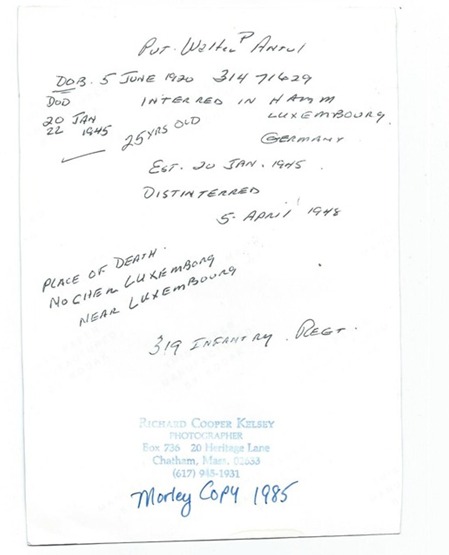 Pvt. Walter P Antol
DOB. 5 JUNE 1920 31471629
DOD INTERRED IN HAMM
20 JAN LUXEMBOURG
22 1945 25 YRS OLD GERMANY
EST. 20 JAN. 1945.
DISTINTERRED
5. APRIL 1948
PLACE OF DEATH.
NOCHER LUXEMBORG
NEAR LUXEMBOURG
319 INFANTRY. REGT.
RICHARD COOPER KELSEY
PHOTOGRAPHER
Box 736 20 Heritage Lane
Chatham, Mass. 02633
(617) 945-1931
Morley Copy 1985